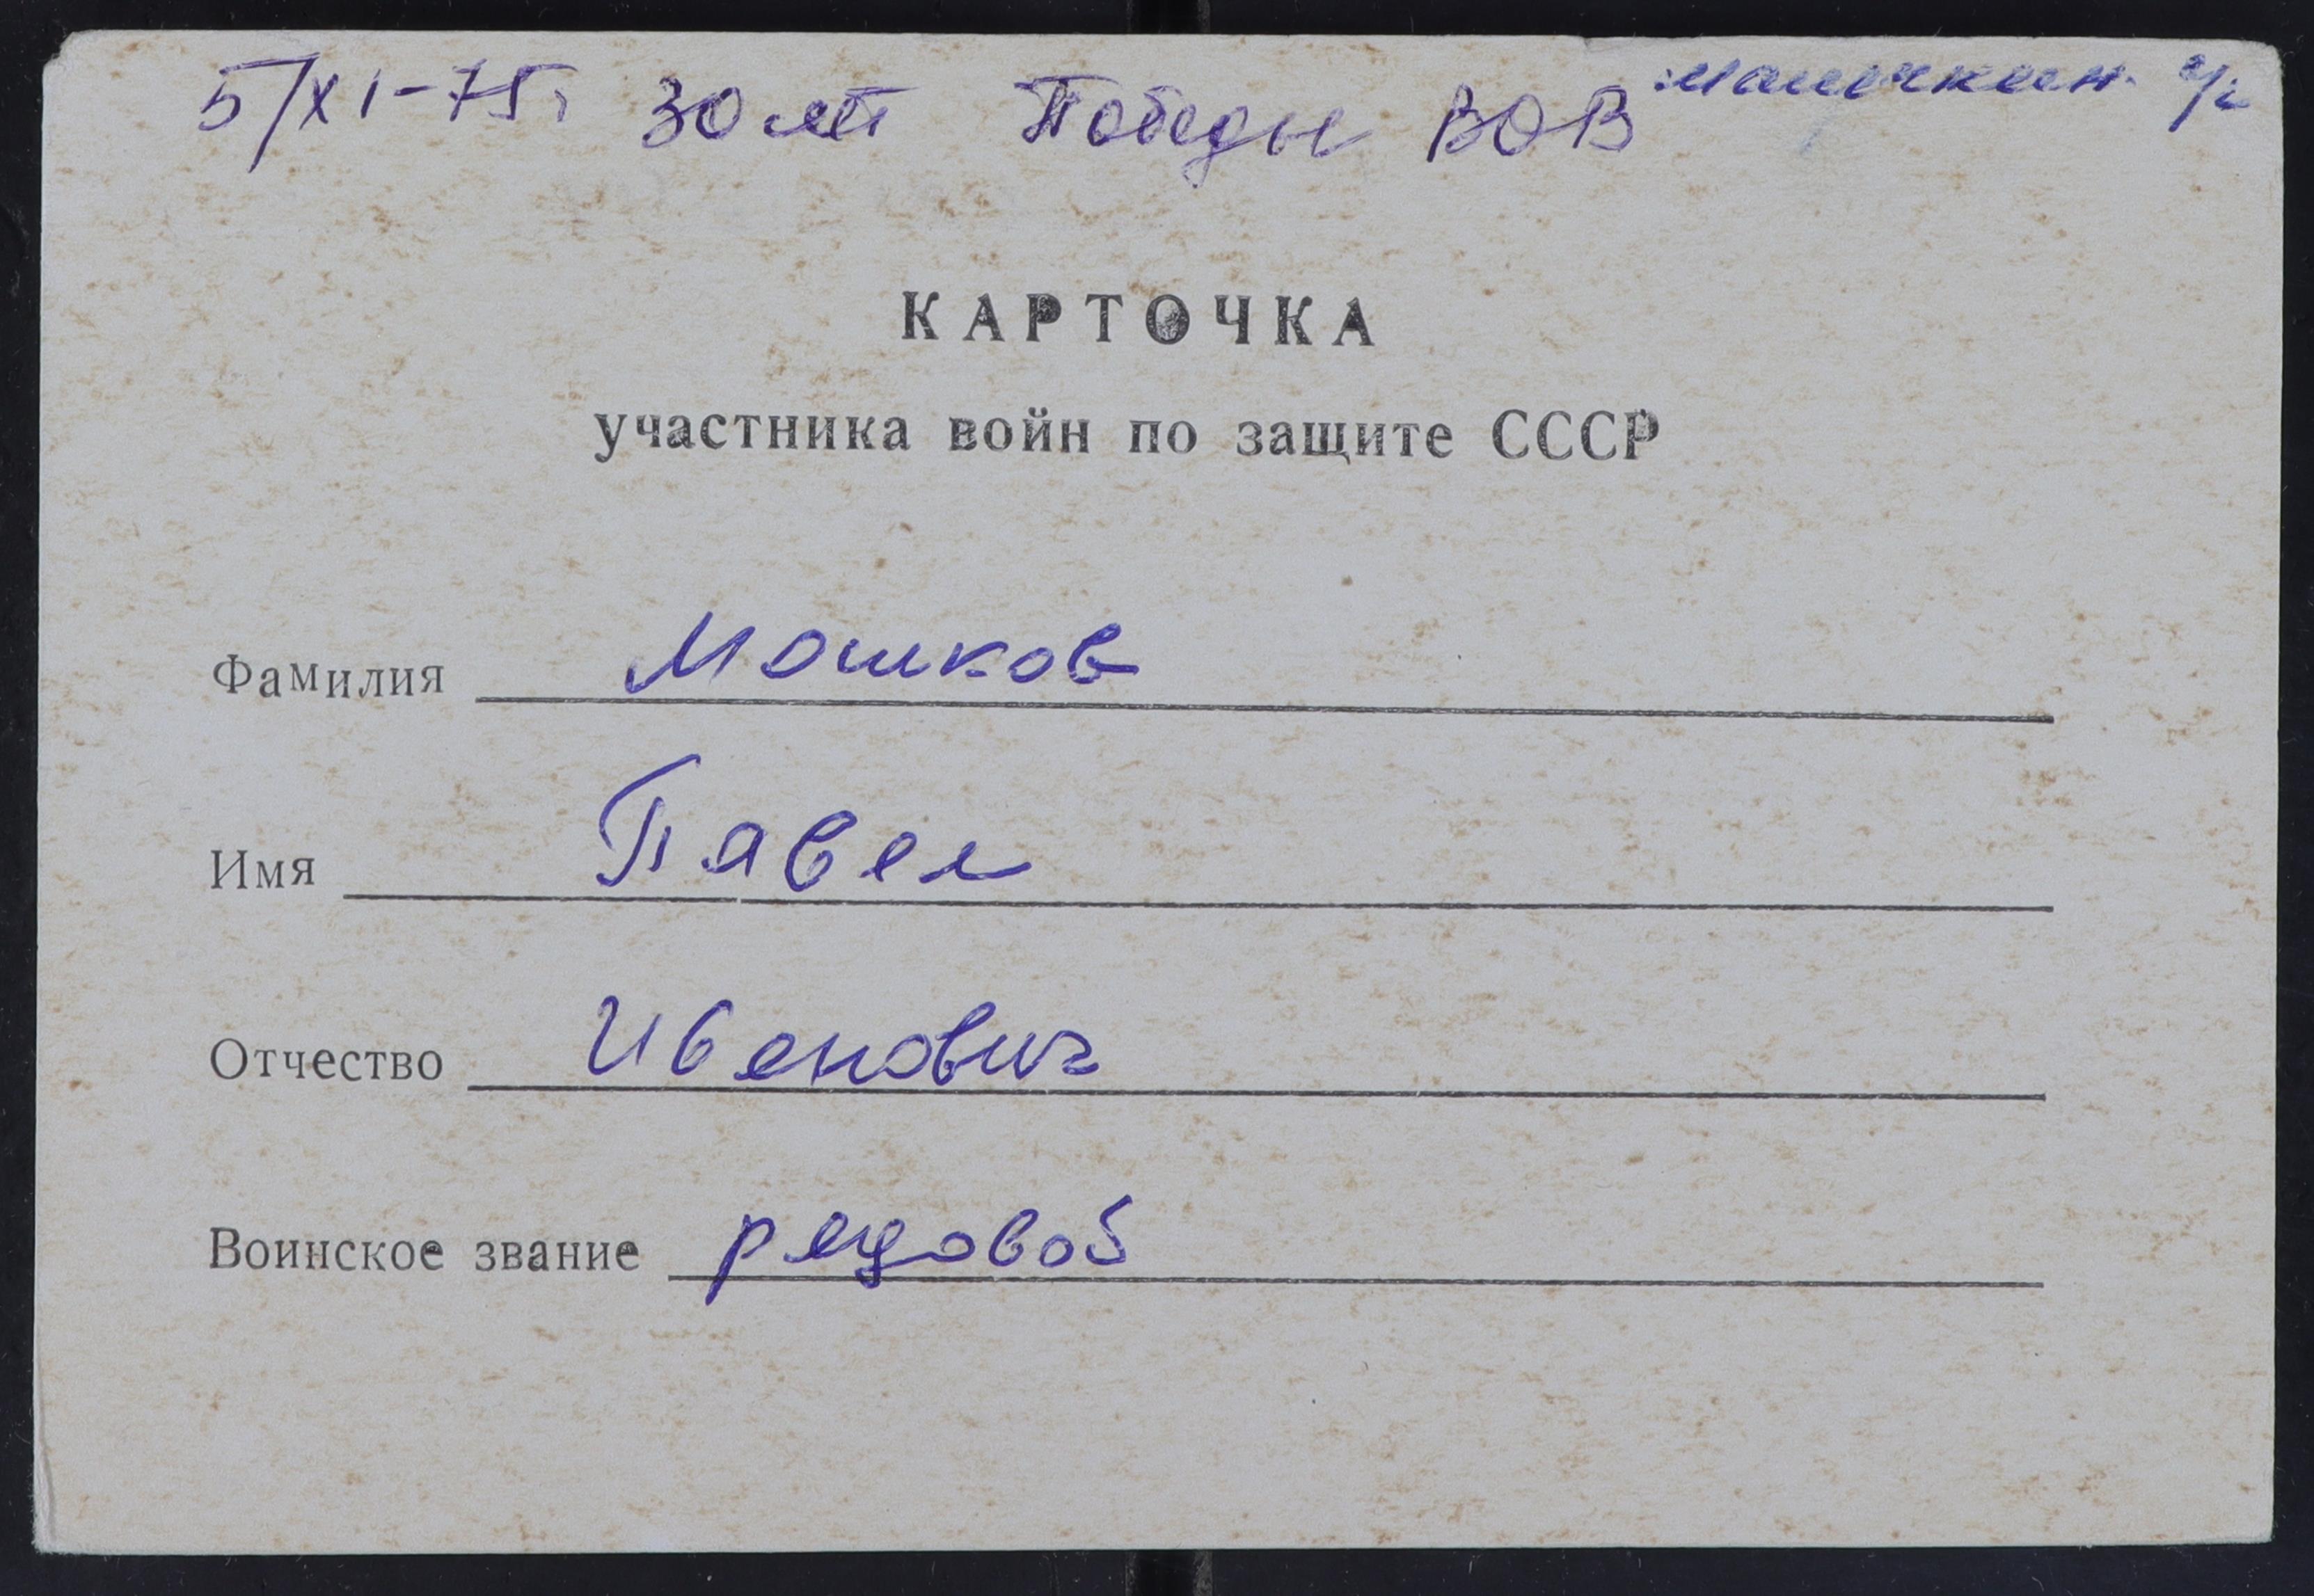 5/XI-75г 30 лет Победы ВОВ
КАРТОЧКА
участника войн по защите СССР
Фамилия Мошков
Имя Павел
Отчество Иванович
Воинское звание рядовой